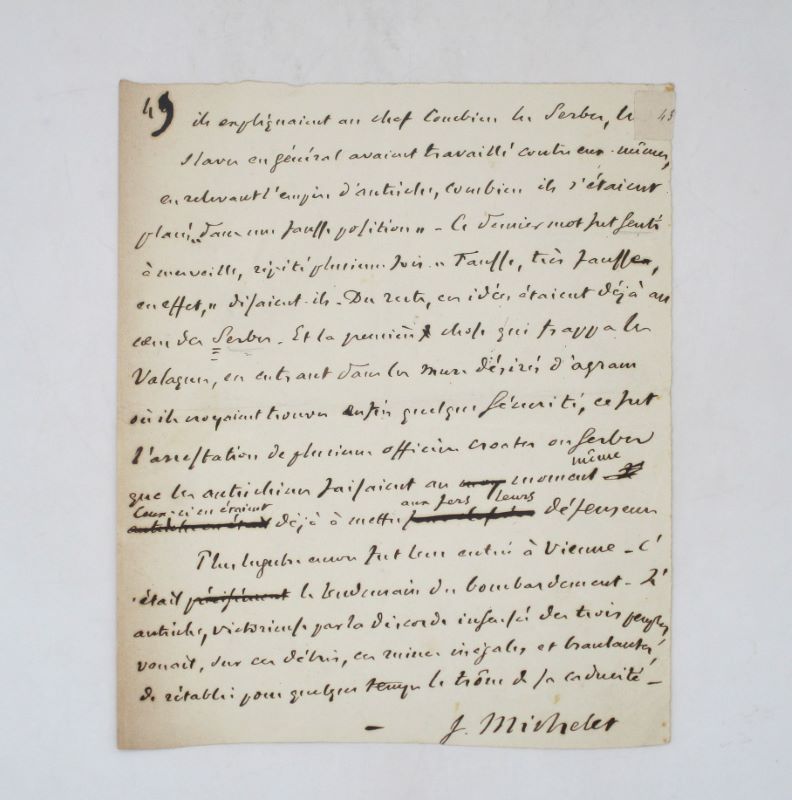 49
ils expliquaient au chef combien les Serbes, les 43
slaves en général avaient travaillé contre eux-mêmes,
en relevant l'empire d'autriche, combien ils s'étaient
placés "dans une fausse position" - Ce dernier mot fut senti
à merveille, répété plusieurs fois. "Fausse, très fausse,
en effet," disaient-ils. Du reste, ces idées étaient déjà au
cœur des Serbes. Et la première chose qui frappa les
Valaques, en entrant dans les murs désirés d'agram
où ils croyaient trouver enfin quelque sécurité, ce fut
l'arrestation de plusieurs officiers croates ou serbes
que les autrichiens faisaient au moment même
Ceux-ci en étaient déjà à mettre aux fers leurs défenseurs
Plus lugubre encore fut leur entrée à Vienne - C'
était précisément le lendemain du bombardement - L'
autriche, victorieuse par la discorde insensée des trois peuples
venait, sur ces débris, ces ruines inégales et branlantes,
de rétablir pour quelque temps le trône de sa caducité -
- J. Michelet